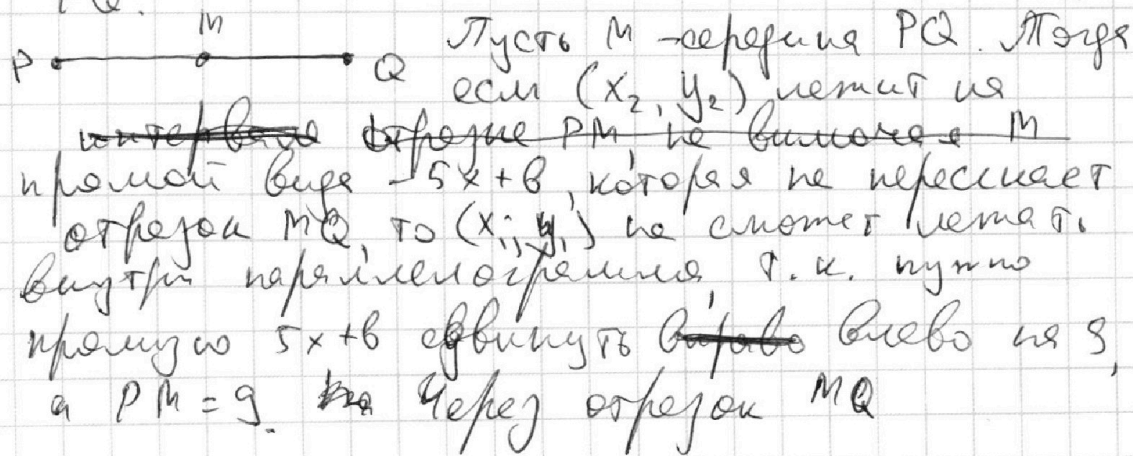 PQ.
M
P Q Пусть M - середина PQ. Тогда
если (x₂, y₂) лежит на
интервале отрезке PM, не включая M
прямой вида -5x+b, которая не пересекает
отрезок MQ, то (x₁; y₁) не сможет лежать
внутри параллелограмма, т.к. нужно
прямую 5x+b сдвинуть вправо влево на 9,
а PM = 9. Через отрезок MQ